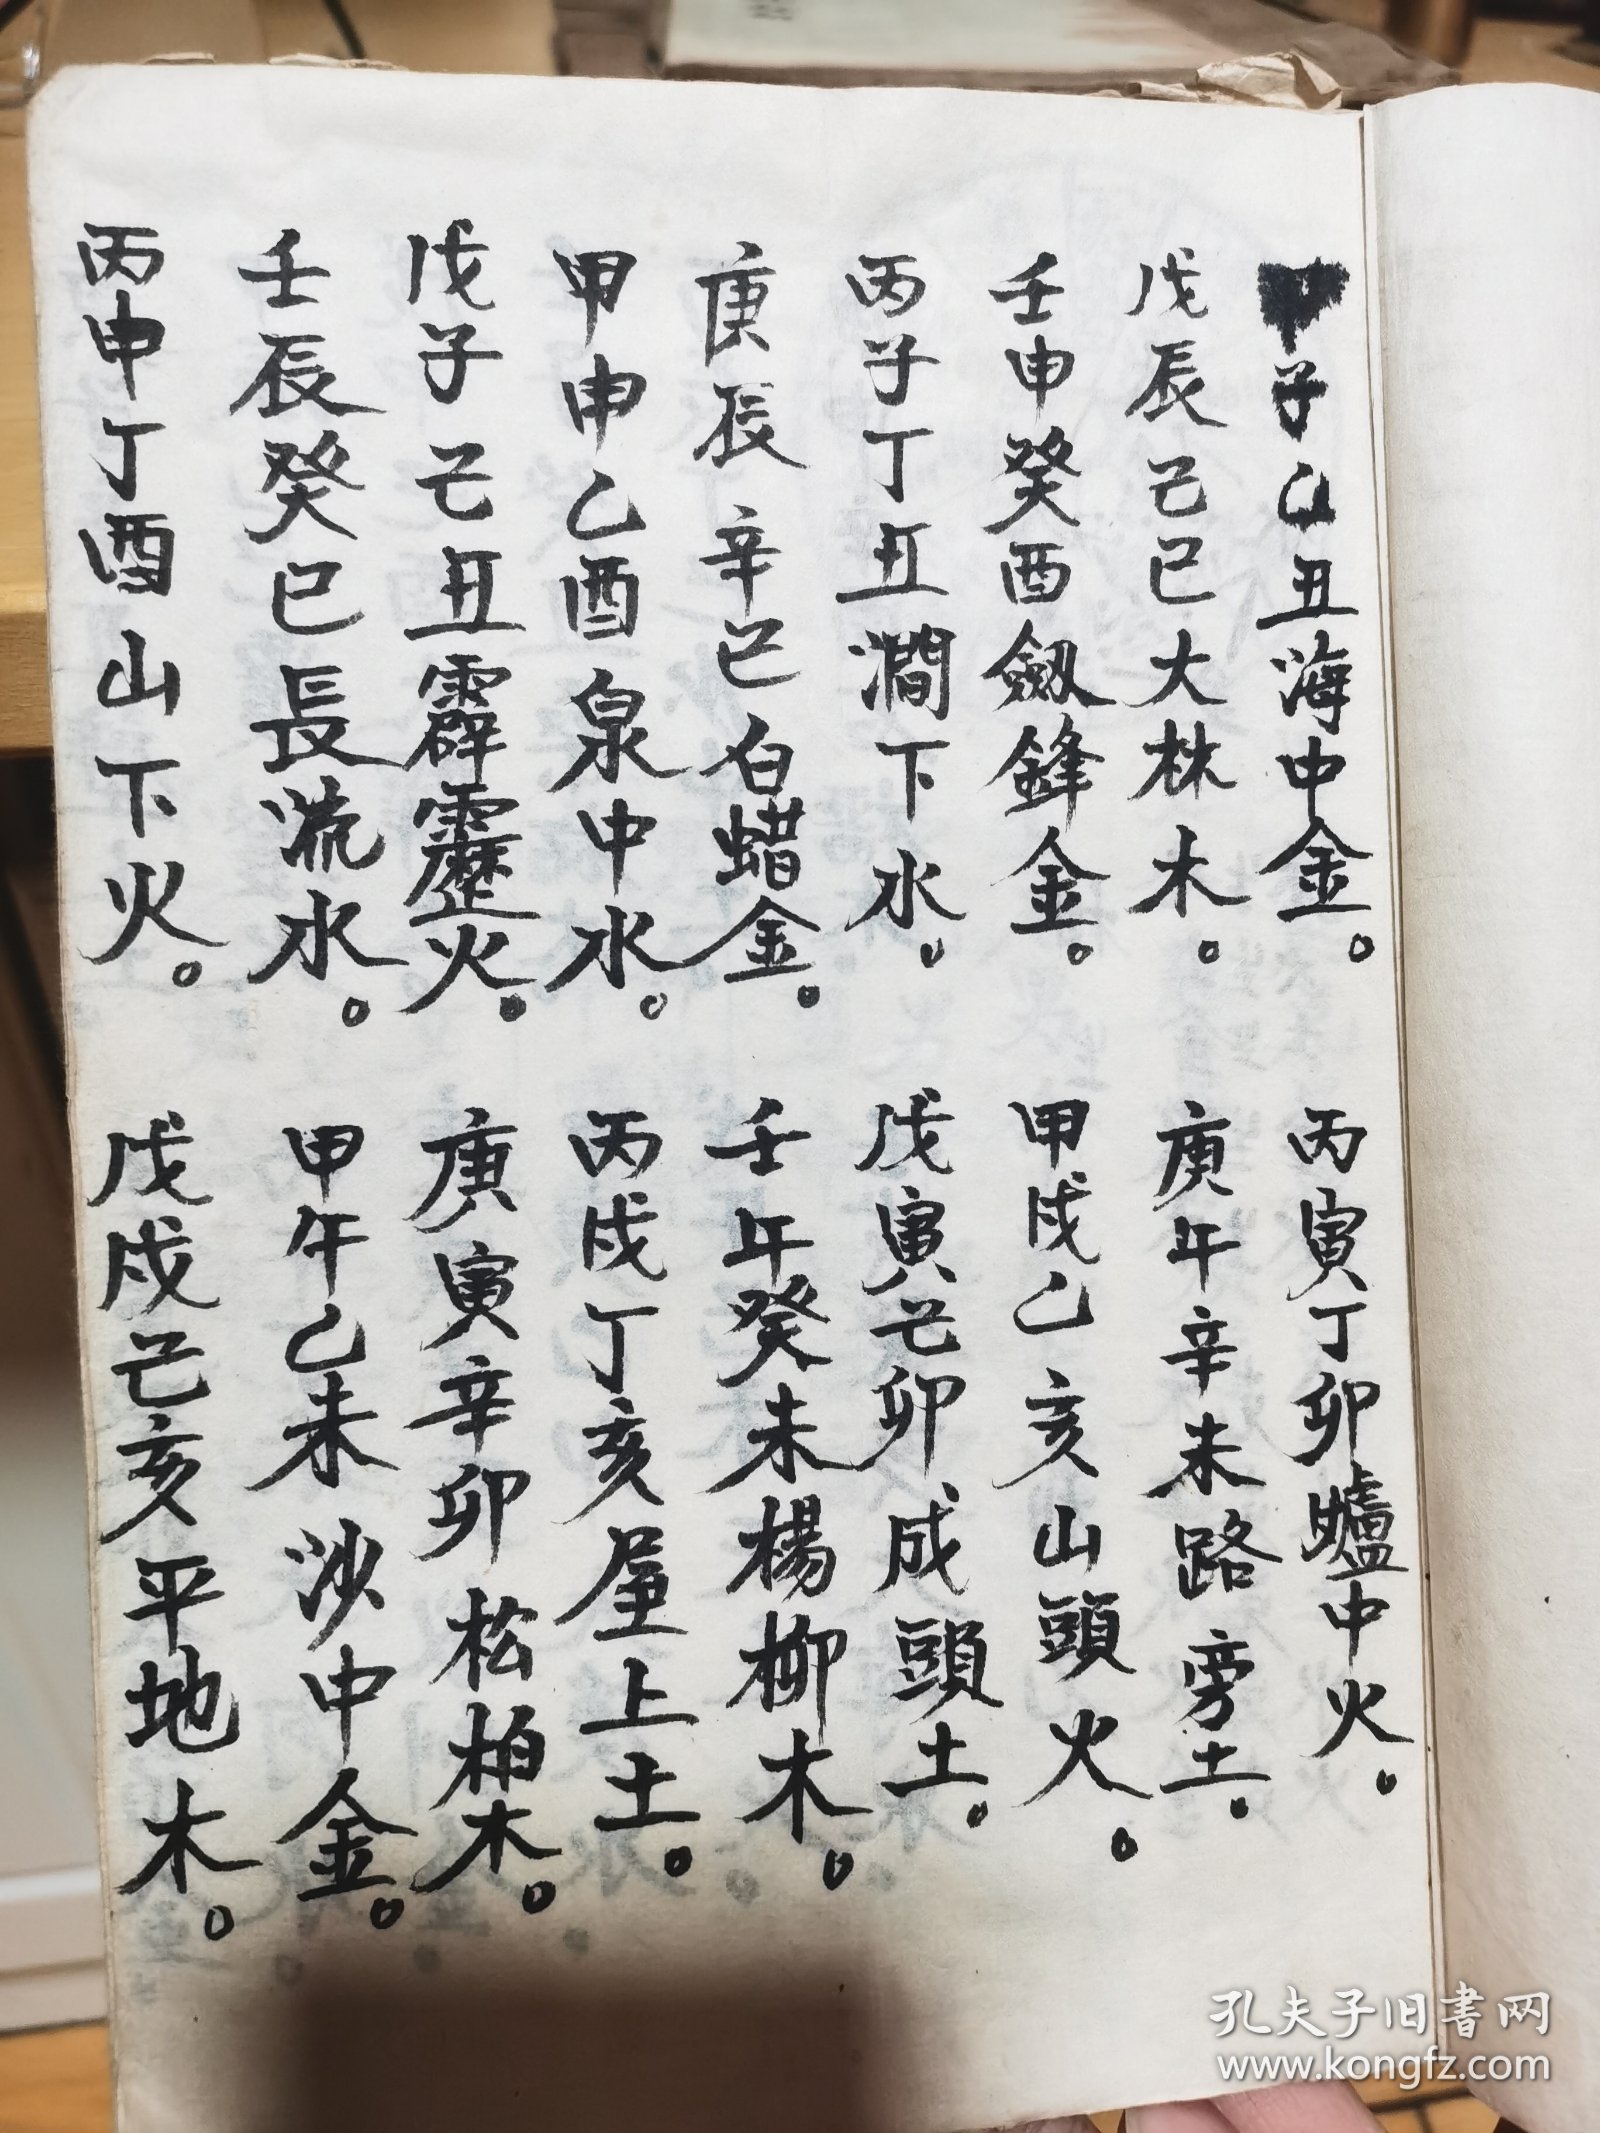 甲子乙丑海中金。丙寅丁卯爐中火。
戊辰己巳大林木。庚午辛未路旁土。
壬申癸酉劔鋒金。甲戌乙亥山頭火。
丙子丁丑澗下水。戊寅己卯成頭土。
庚辰辛巳白蜡金。壬午癸未楊柳木。
甲申乙酉泉中水。丙戌丁亥屋上土。
戊子己丑霹靂火。庚寅辛卯松柏木。
壬辰癸巳長流水。甲午乙未沙中金。
丙申丁酉山下火。戊戌己亥平地木。
孔夫子旧書网
www.kongfz.com